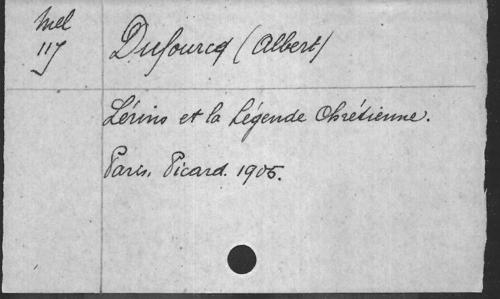 Mel
117
Dufourcq (Albert)
Lérins et la Légende Chrétienne.
Paris. Picard. 1905.